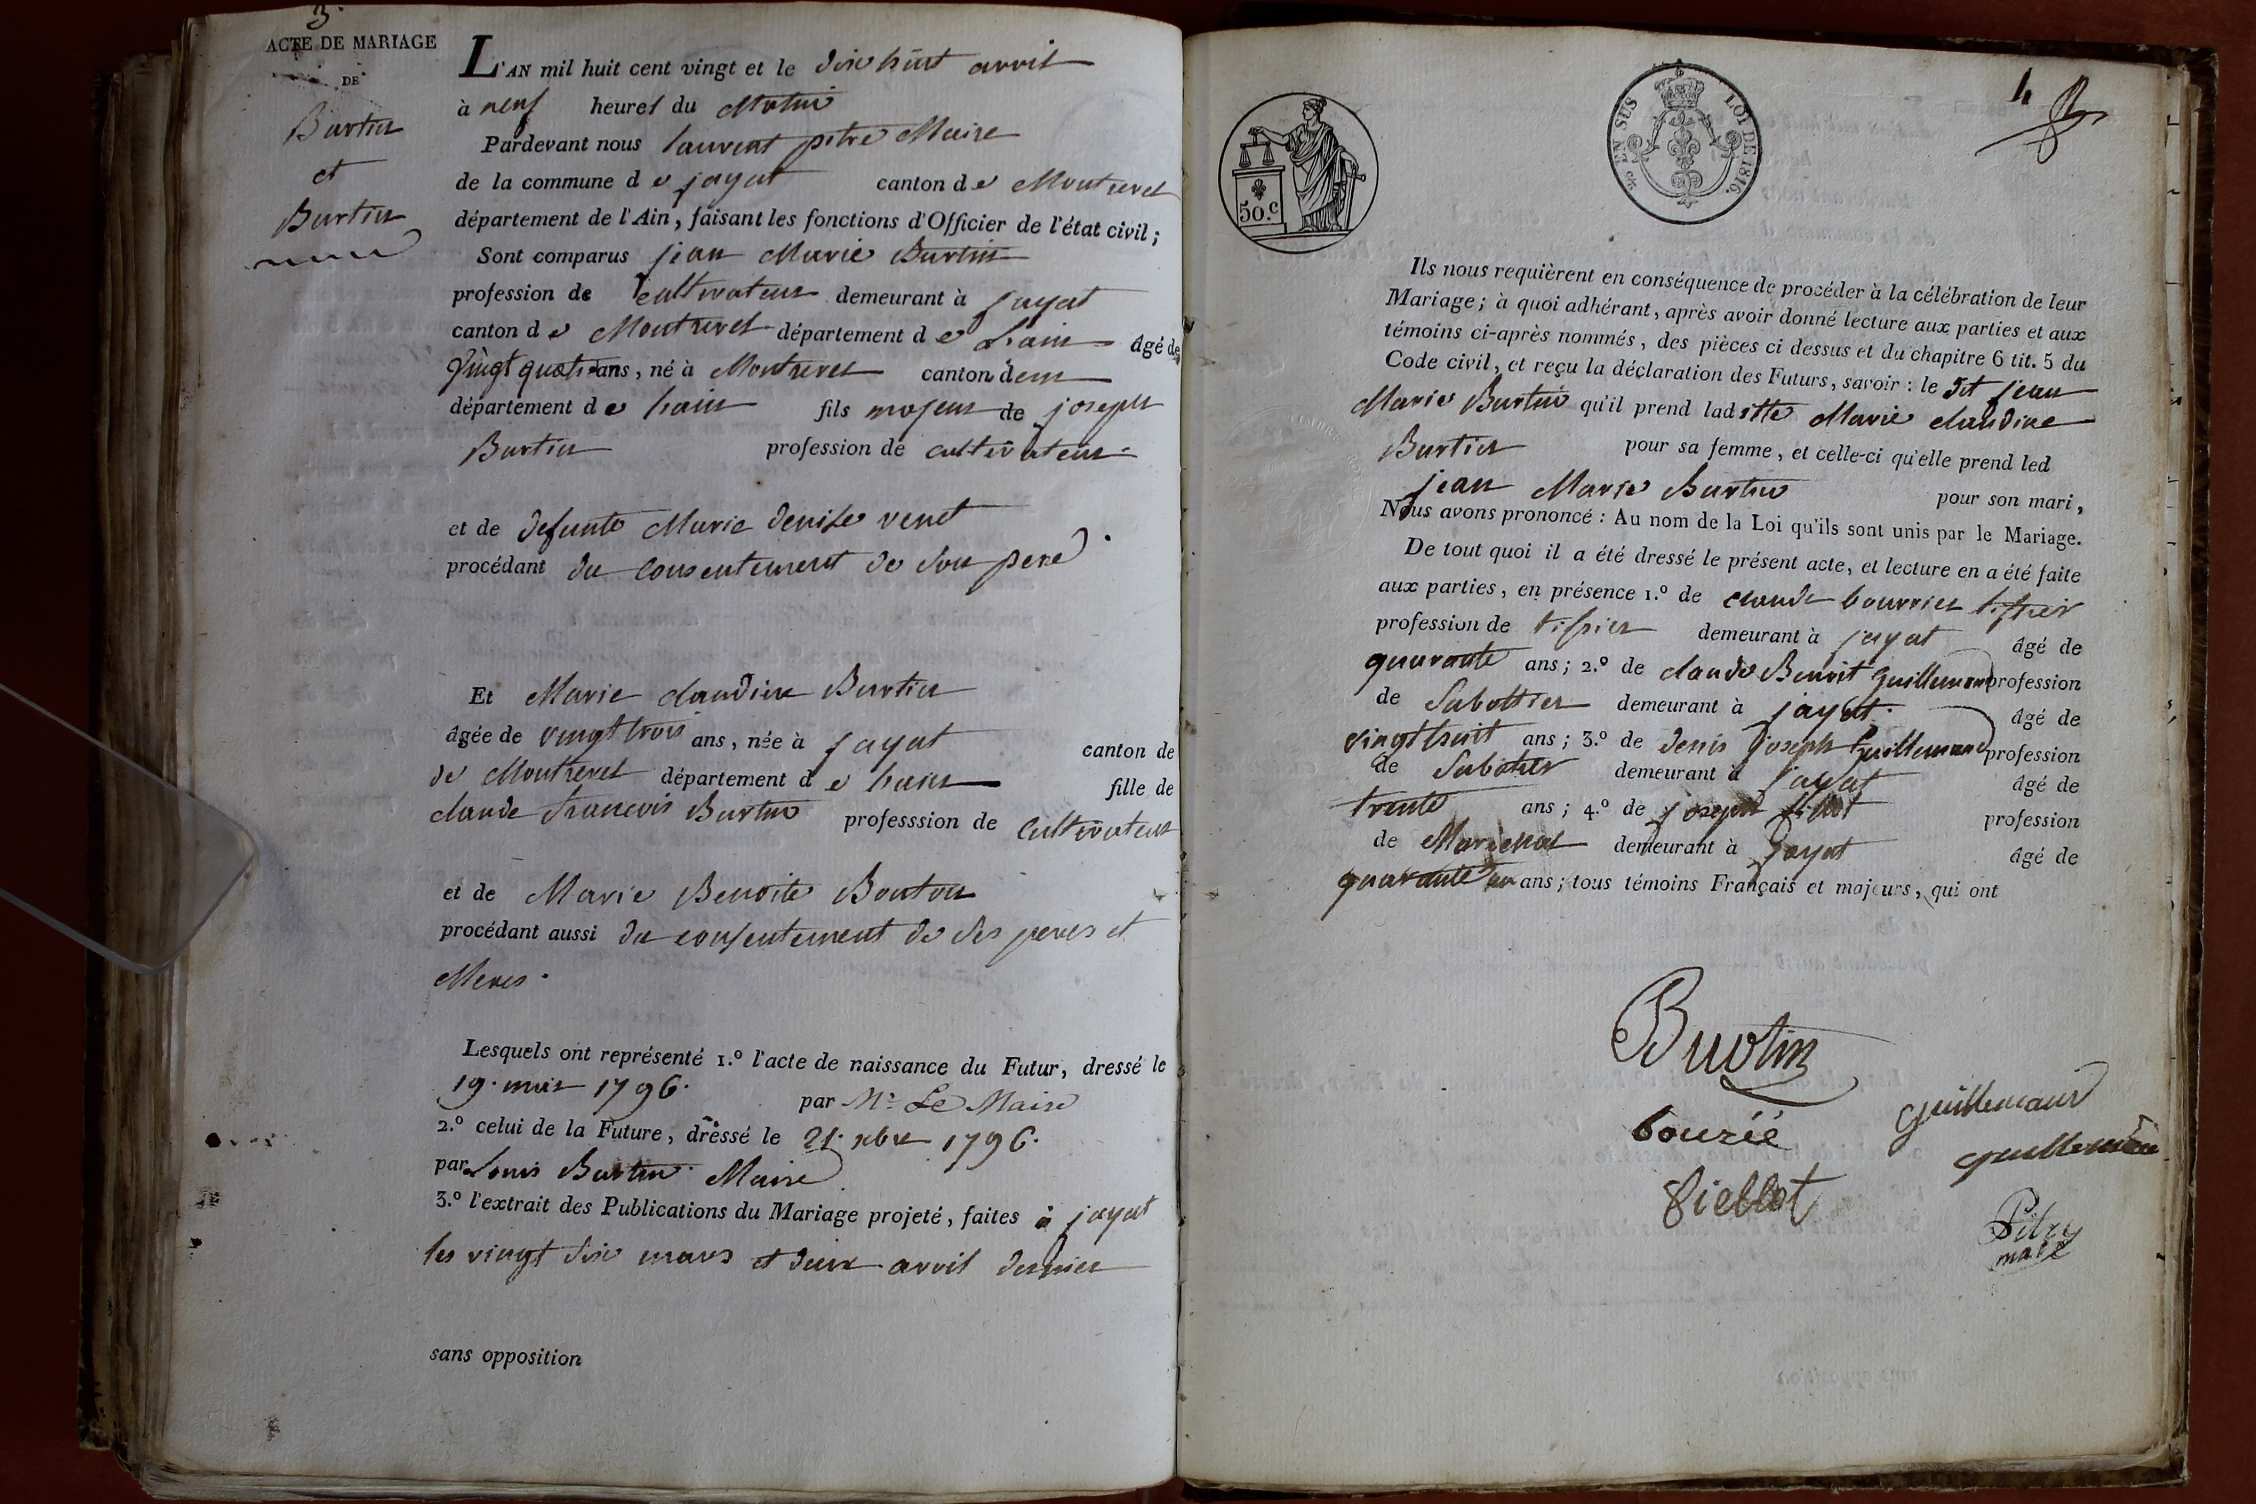 3.
ACTE DE MARIAGE
DE
Burtin
et
Burtin
L'AN mil huit cent vingt et le dix huit avril
à neuf heures du Matin
Pardevant nous laurent pitre Maire
de la commune de jayat canton de Montrevel
département de l'Ain, faisant les fonctions d'Officier de l'état civil;
Sont comparus jean Marie Burtin
profession de cultivateur demeurant à jayat
canton de Montrevel département de Lain âgé de
vingt quatre ans, né à Montrevel canton dem
département de Lain fils majeur de joseph
Burtin profession de cultivateur
et de defunte Marie denise venet
procédant du consentement de son pere
Et Marie claudine Burtin
âgée de vingt trois ans, née à jayat canton de
de Montrevel département de Lain fille de
claude francois Burtin professsion de Cultivateur
et de Marie Benoite Bouton
procédant aussi du consentement de ses peres et
Meres.
Lesquels ont représenté 1.º l'acte de naissance du Futur, dressé le
19. 1796. par Mr Le Maire
2.º celui de la Future, dressé le 21. 1796.
par Louis Burtin Maire
3.º l'extrait des Publications du Mariage projeté, faites à jayat
les vingt six mars et deux avril dernier
sans opposition
50.c
EN SUS
LOI DE 1816.
4
Ils nous requièrent en conséquence de procéder à la célébration de leur
Mariage; à quoi adhérant, après avoir donné lecture aux parties et aux
témoins ci-après nommés, des pièces ci dessus et du chapitre 6 tit. 5 du
Code civil, et reçu la déclaration des Futurs, savoir: le dit jean
Marie Burtin qu'il prend laditte Marie claudine
Burtin pour sa femme, et celle-ci qu'elle prend led
jean Marie Burtin pour son mari,
Nous avons prononcé: Au nom de la Loi qu'ils sont unis par le Mariage.
De tout quoi il a été dressé le présent acte, et lecture en a été faite
aux parties, en présence 1.º de claude bourrier tissier
profession de tissier demeurant à jayat âgé de
quarante ans; 2.º de claude Benoit guillemaud profession
de Sabottier demeurant à jayat. âgé de
vingt huit ans; 3.º de denis joseph guillemaud profession
de Sabotier demeurant à jayat âgé de
trente ans; 4.º de joseph profession
de Marechal demeurant à jayat âgé de
quarante un ans; tous témoins Français et majeurs, qui ont
Burtin
guillemaud
bourié
guillemau
Pitre
maire